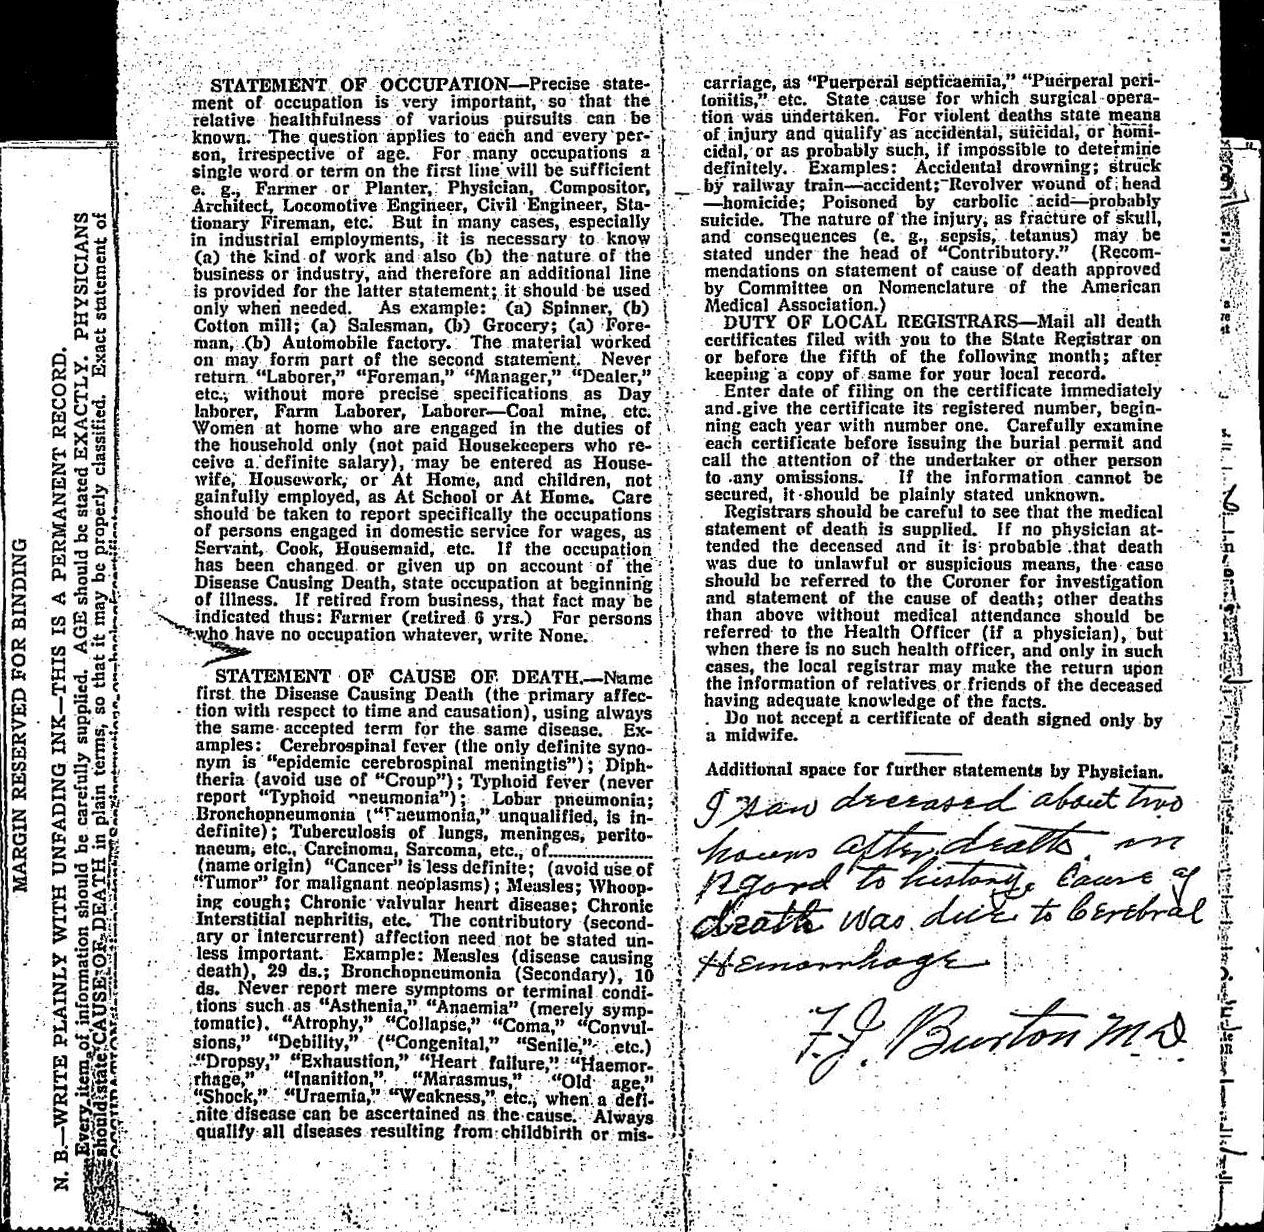 MARGIN RESERVED FOR BINDING
N. B.—WRITE PLAINLY WITH UNFADING INK—THIS IS A PERMANENT RECORD.
Every item of information should be carefully supplied. AGE should be stated EXACTLY. PHYSICIANS
should state CAUSE OF DEATH in plain terms, so that it may be properly classified. Exact statement of
STATEMENT OF OCCUPATION—Precise state-
ment of occupation is very important, so that the
relative healthfulness of various pursuits can be
known. The question applies to each and every per-
son, irrespective of age. For many occupations a
single word or term on the first line will be sufficient
e. g., Farmer or Planter, Physician, Compositor,
Architect, Locomotive Engineer, Civil Engineer, Sta-
tionary Fireman, etc. But in many cases, especially
in industrial employments, it is necessary to know
(a) the kind of work and also (b) the nature of the
business or industry, and therefore an additional line
is provided for the latter statement; it should be used
only when needed. As example: (a) Spinner, (b)
Cotton mill; (a) Salesman, (b) Grocery; (a) Fore-
man, (b) Automobile factory. The material worked
on may form part of the second statement. Never
return "Laborer," "Foreman," "Manager," "Dealer,"
etc., without more precise specifications as Day
laborer, Farm Laborer, Laborer—Coal mine, etc.
Women at home who are engaged in the duties of
the household only (not paid Housekeepers who re-
ceive a definite salary), may be entered as House-
wife, Housework, or At Home, and children, not
gainfully employed, as At School or At Home. Care
should be taken to report specifically the occupations
of persons engaged in domestic service for wages, as
Servant, Cook, Housemaid, etc. If the occupation
has been changed or given up on account of the
Disease Causing Death, state occupation at beginning
of illness. If retired from business, that fact may be
indicated thus: Farmer (retired 6 yrs.) For persons
who have no occupation whatever, write None.
STATEMENT OF CAUSE OF DEATH.—Name
first the Disease Causing Death (the primary affec-
tion with respect to time and causation), using always
the same accepted term for the same disease. Ex-
amples: Cerebrospinal fever (the only definite syno-
nym is "epidemic cerebrospinal meningtis"); Diph-
theria (avoid use of "Croup"); Typhoid fever (never
report "Typhoid pneumonia"); Lobar pneumonia;
Bronchopneumonia ("Pneumonia," unqualified, is in-
definite); Tuberculosis of lungs, meninges, perito-
naeum, etc., Carcinoma, Sarcoma, etc., of....................
(name origin) "Cancer" is less definite; (avoid use of
"Tumor" for malignant neoplasms); Measles; Whoop-
ing cough; Chronic valvular heart disease; Chronic
Interstitial nephritis, etc. The contributory (second-
ary or intercurrent) affection need not be stated un-
less important. Example: Measles (disease causing
death), 29 ds.; Bronchopneumonia (Secondary), 10
ds. Never report mere symptoms or terminal condi-
tions such as "Asthenia," "Anaemia" (merely symp-
tomatic), "Atrophy," "Collapse," "Coma," "Convul-
sions," "Debility," ("Congenital," "Senile," etc.)
"Dropsy," "Exhaustion," "Heart failure," "Haemor-
rhage," "Inanition," "Marasmus," "Old age,"
"Shock," "Uraemia," "Weakness," etc., when a defi-
nite disease can be ascertained as the cause. Always
qualify all diseases resulting from childbirth or mis-
carriage, as "Puerperal septicaemia," "Puerperal peri-
tonitis," etc. State cause for which surgical opera-
tion was undertaken. For violent deaths state means
of injury and qualify as accidental, suicidal, or homi-
cidal, or as probably such, if impossible to determine
definitely. Examples: Accidental drowning; struck
by railway train—accident; Revolver wound of head
—homicide; Poisoned by carbolic acid—probably
suicide. The nature of the injury, as fracture of skull,
and consequences (e. g., sepsis, tetanus) may be
stated under the head of "Contributory." (Recom-
mendations on statement of cause of death approved
by Committee on Nomenclature of the American
Medical Association.)
DUTY OF LOCAL REGISTRARS—Mail all death
certificates filed with you to the State Registrar on
or before the fifth of the following month; after
keeping a copy of same for your local record.
Enter date of filing on the certificate immediately
and give the certificate its registered number, begin-
ning each year with number one. Carefully examine
each certificate before issuing the burial permit and
call the attention of the undertaker or other person
to any omissions. If the information cannot be
secured, it should be plainly stated unknown.
Registrars should be careful to see that the medical
statement of death is supplied. If no physician at-
tended the deceased and it is probable that death
was due to unlawful or suspicious means, the case
should be referred to the Coroner for investigation
and statement of the cause of death; other deaths
than above without medical attendance should be
referred to the Health Officer (if a physician), but
when there is no such health officer, and only in such
cases, the local registrar may make the return upon
the information of relatives or friends of the deceased
having adequate knowledge of the facts.
Do not accept a certificate of death signed only by
a midwife.
Additional space for further statements by Physician.
I saw deceased about two
hours after death. in
regard to history. Cause of
death was due to Cerebral
Hemorrhage
F. J. Burton M.D.